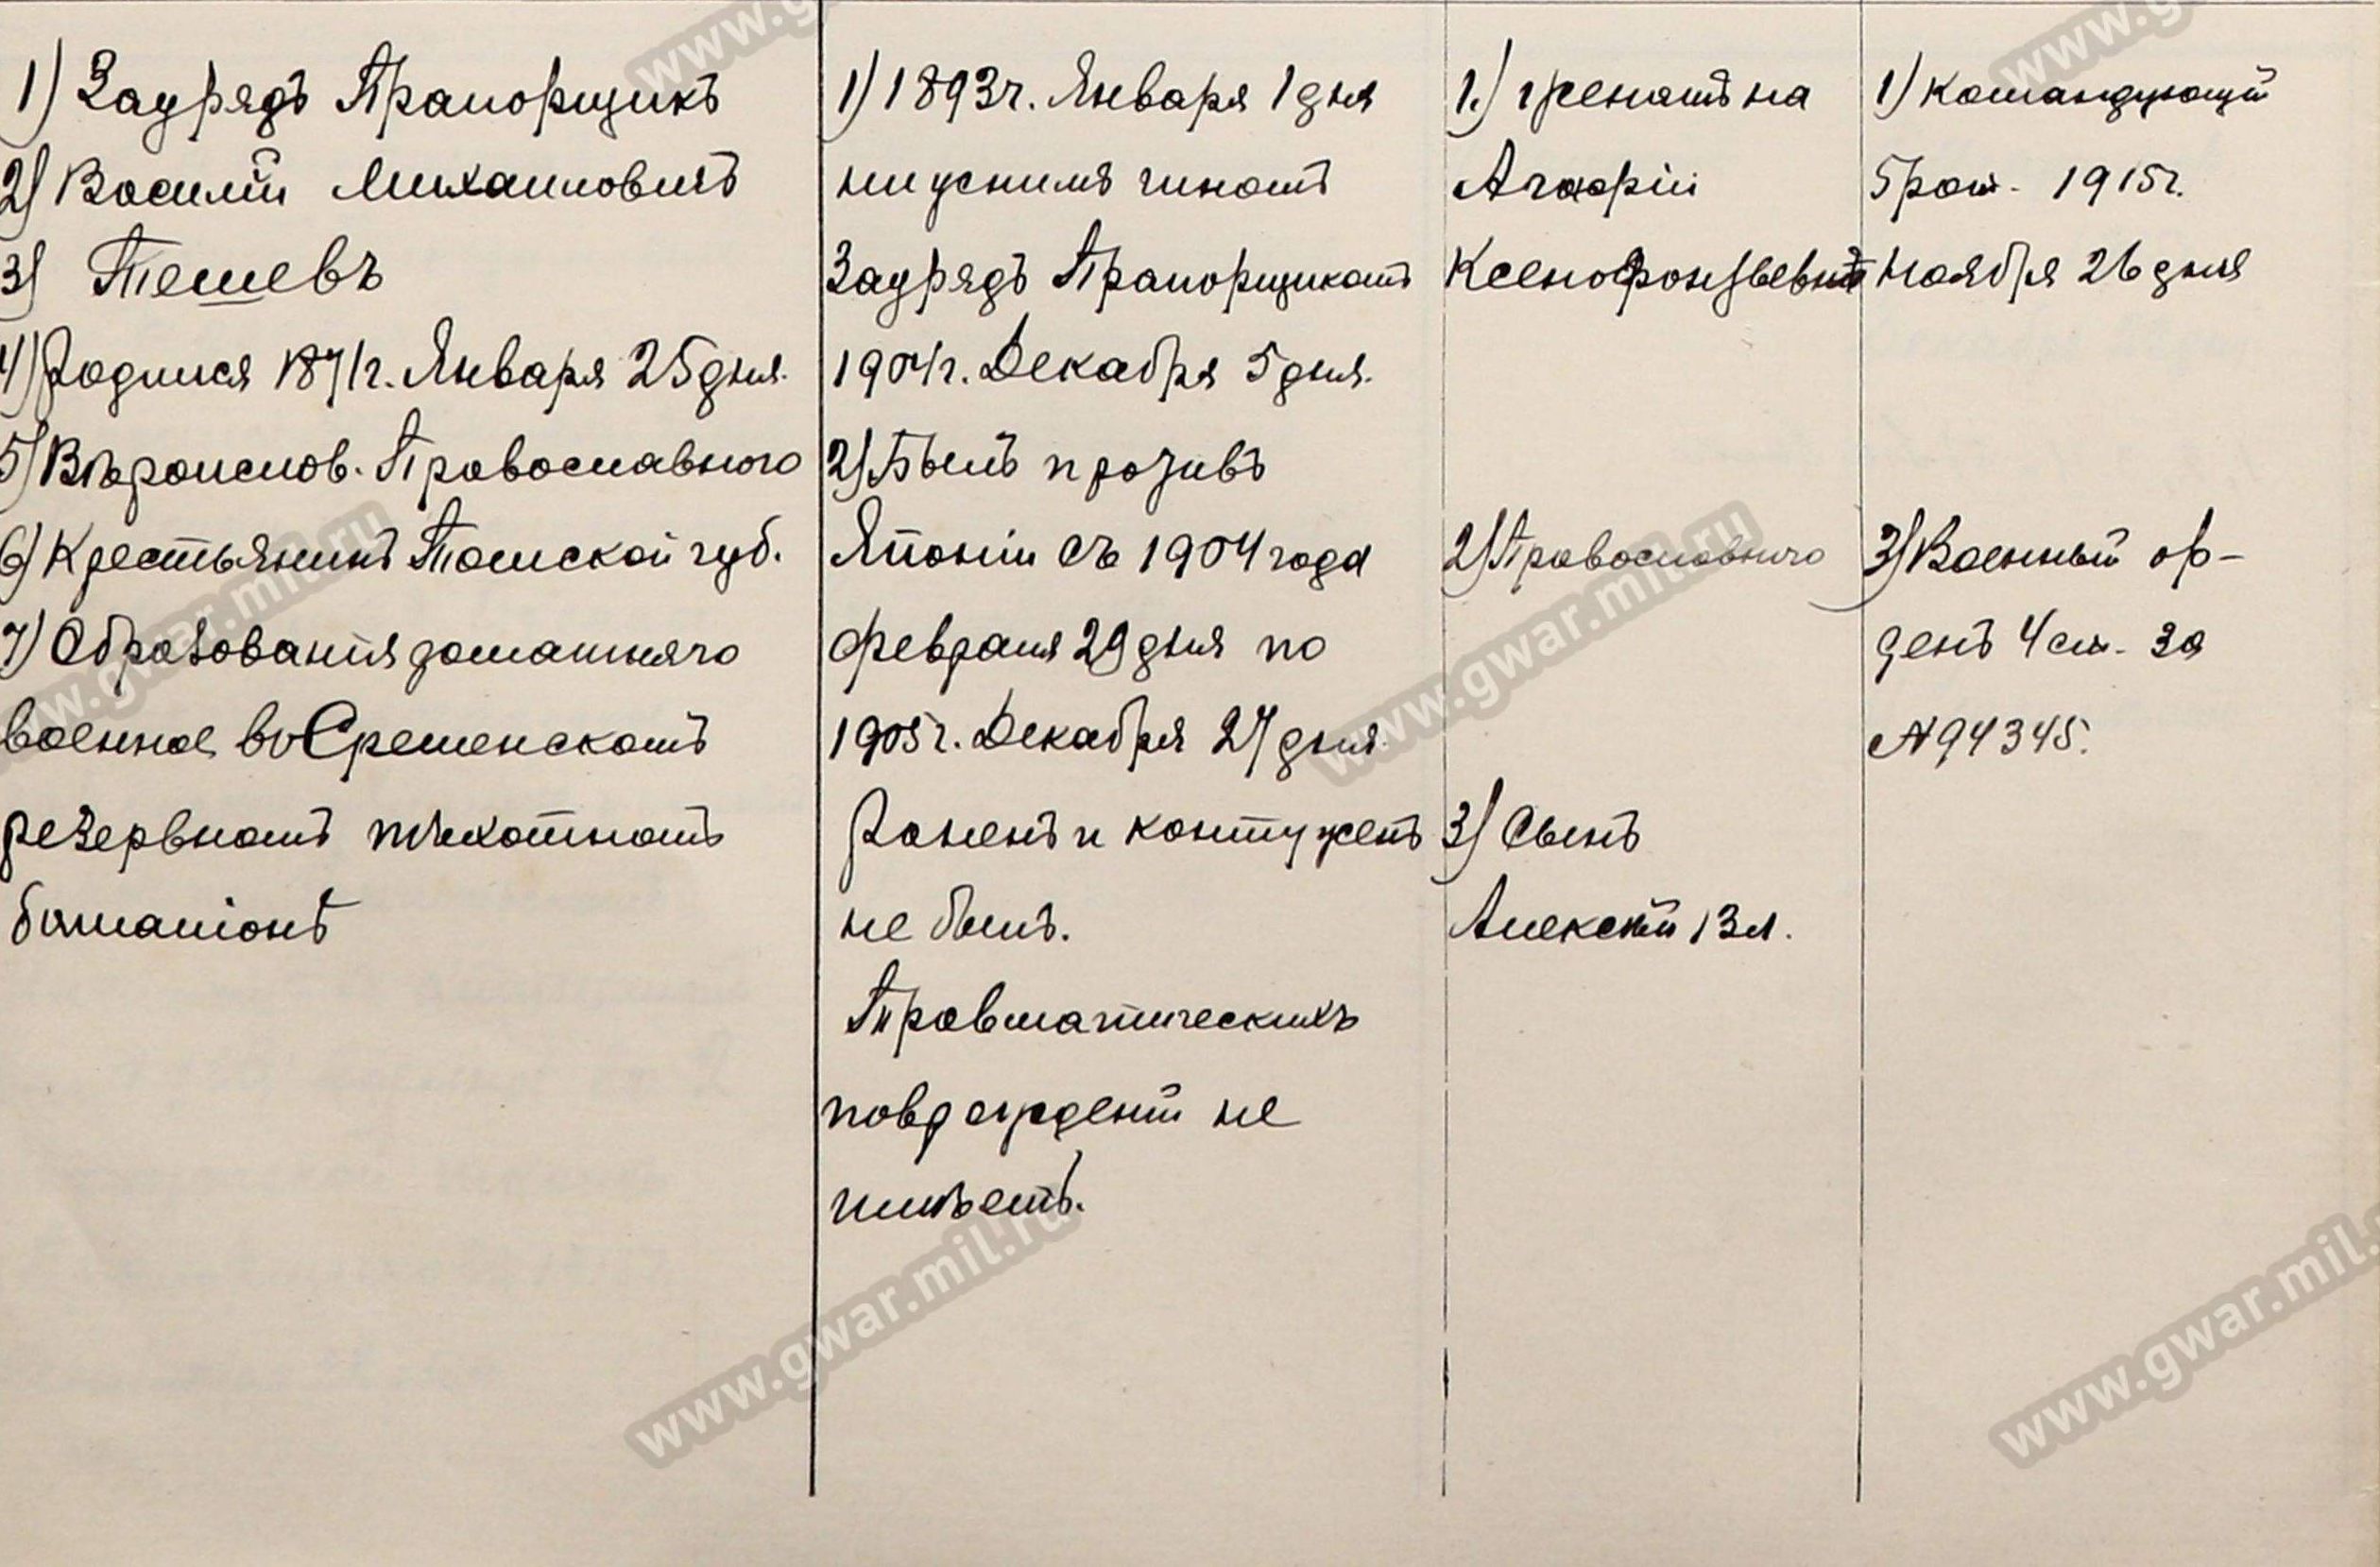 1) Заурядъ Прапорщикъ
2) Василій Михаиловичъ
3) Тешевъ
4) Родился 1871г. Января 25 дня.
5) Вѣроислов. Православнаго
6) Крестьянинъ Томской губ.
7) Образованія домашняго
военное, въ Срѣтенскомъ
резервномъ пѣхотномъ
баталіонѣ
1) 1893г. Января 1 дня
нижнимъ чиномъ
Заурядъ Прапорщикомъ
1904г. Декабря 5 дня.
2) Былъ противъ
Японіи съ 1904 года
февраля 29 дня по
1905г. Декабря 27 дня
Раненъ и контуженъ
не былъ.
Травматическихъ
поврежденій не
имѣетъ.
1.) женатъ на
Агафіи
Ксенофонтьевнѣ
2) Православнаго
3) Сынъ
Алексѣй 13 л.
1) Командующій
5 рот. 1915г.
Ноября 26 дня
3) Военный ор-
денъ 4 ст. за
№94345.
www.gwar.mil.ru
www.gwar.mil.ru
www.gwar.mil.ru